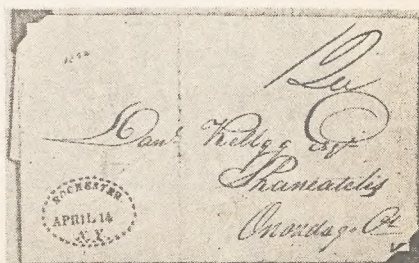 Danl Kellogg Esqr
Skaneatelis
Onondaga Co
ROCHESTER
APRIL 14
N.Y.